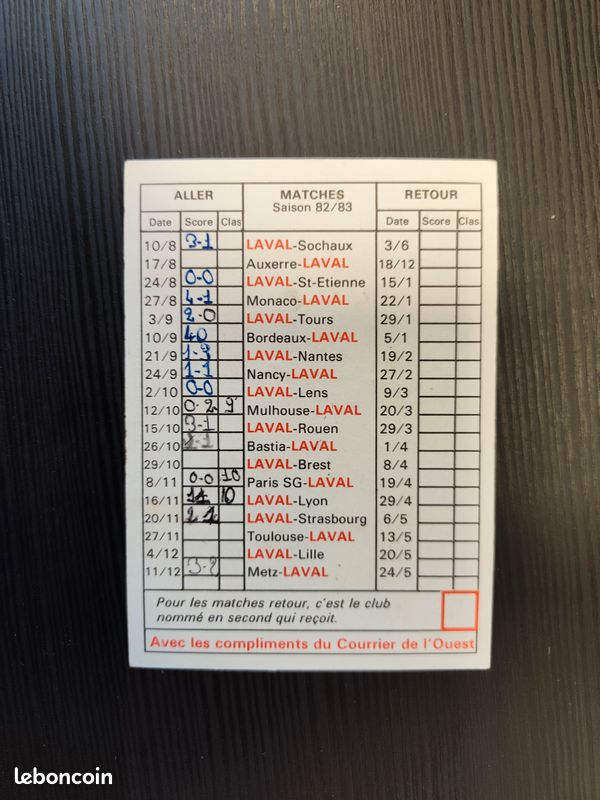 ALLER MATCHES RETOUR
Saison 82/83
Date Score Clas Date Score Clas.
10/8 3-1 LAVAL-Sochaux 3/6
17/8 Auxerre-LAVAL 18/12
24/8 0-0 LAVAL-St-Etienne 15/1
27/8 4-1 Monaco-LAVAL 22/1
3/9 2-0 LAVAL-Tours 29/1
10/9 40 Bordeaux-LAVAL 5/1
21/9 1-3 LAVAL-Nantes 19/2
24/9 1-1 Nancy-LAVAL 27/2
2/10 0-0 LAVAL-Lens 9/3
12/10 0-2 9 Mulhouse-LAVAL 20/3
15/10 3-1 LAVAL-Rouen 29/3
26/10 Bastia-LAVAL 1/4
29/10 LAVAL-Brest 8/4
8/11 0-0 10 Paris SG-LAVAL 19/4
16/11 10 LAVAL-Lyon 29/4
20/11 2 1 LAVAL-Strasbourg 6/5
27/11 Toulouse-LAVAL 13/5
4/12 LAVAL-Lille 20/5
11/12 Metz-LAVAL 24/5
Pour les matches retour, c'est le club
nommé en second qui reçoit.
Avec les compliments du Courrier de l'Ouest
leboncoin